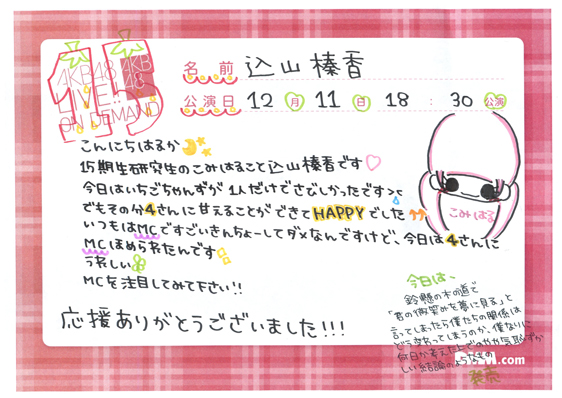 15
AKB48
LIVE!!
ON DEMAND
AKB
48
名前 込山榛香
公演日 12月11日 18:30公演
こんにちはるか
15期生研究生のこみはること込山榛香です
今日はいちごちゃんずが1人だけでさびしかったです><
でもその分4さんに甘えることができてHAPPYでした
いつもはMCですごいきんちょーしてダメなんですけど、今日は4さんに
MCほめられたんです
うれしい
MCを注目してみて下さい!!
応援ありがとうございました!!!
こみはる
今日は、
鈴懸の木の道で
「君の微笑みを夢に見る」と
言ってしまったら僕たちの関係は
どう変わってしまうのか、僕なりに
何日か考えた上でのやや気恥ずか
しい結論のようなもの
発売
.com